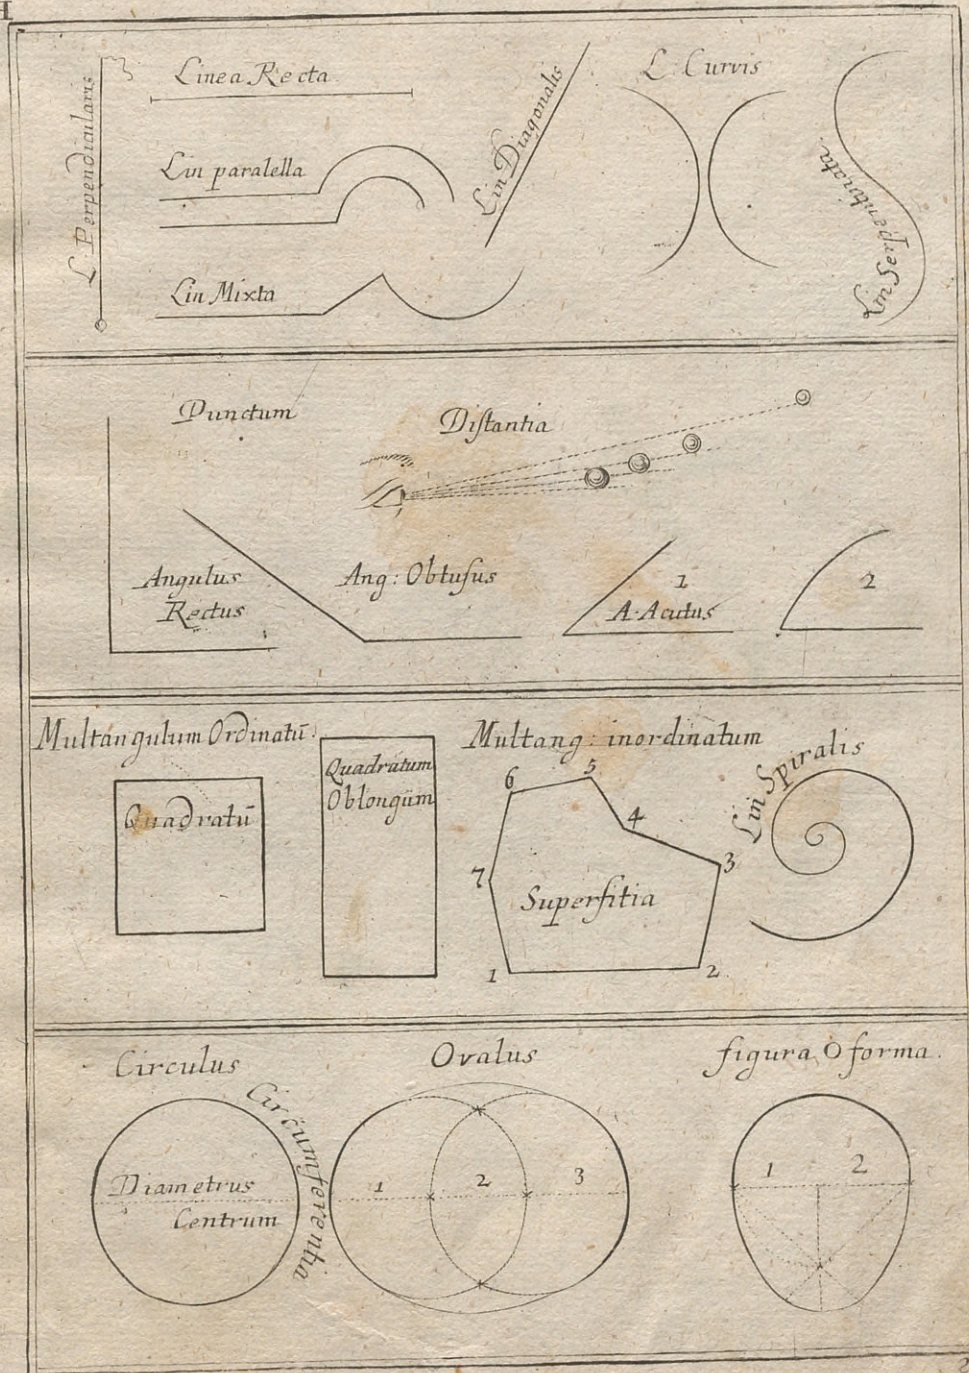 L: Perpendicularis
Linea Recta
Lin paralella
Lin Mixta
Lin Diagonalis
L: Curvis
Lin Serpentirata
Punctum
Distantia
Angulus
Rectus
Ang: Obtusus
1
A: Acutus
2
Multangulum Ordinatū:
Quadratū
Quadratum
Oblongum
Multang: inordinatum
6
5
4
3
7
Superfitia
1
2
Lin Spiralis
Circulus
Diametrus
Centrum
Circumferentia
Ovalus
1
2
3
figura O forma.
1
2
2